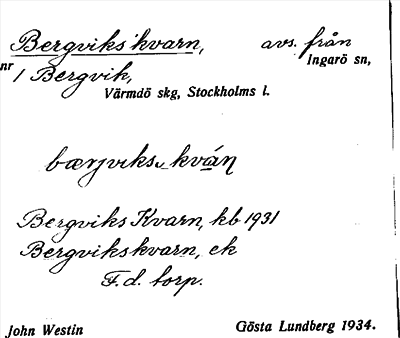 Bergviks kvarn, avs. från
nr 1 Bergvik, Ingarö sn,
Värmdö skg, Stockholms l.
bærjviks kván
Bergviks Kvarn, kb 1931
Bergvikskvarn, ek
F.d. torp.
John Westin Gösta Lundberg 1934.